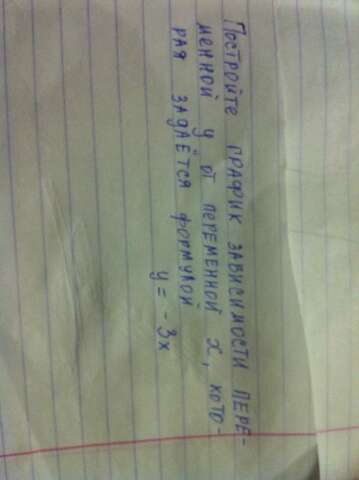 Постройте график зависимости пере-
менной y от переменной x, кото-
рая задаётся формулой
y = - 3x